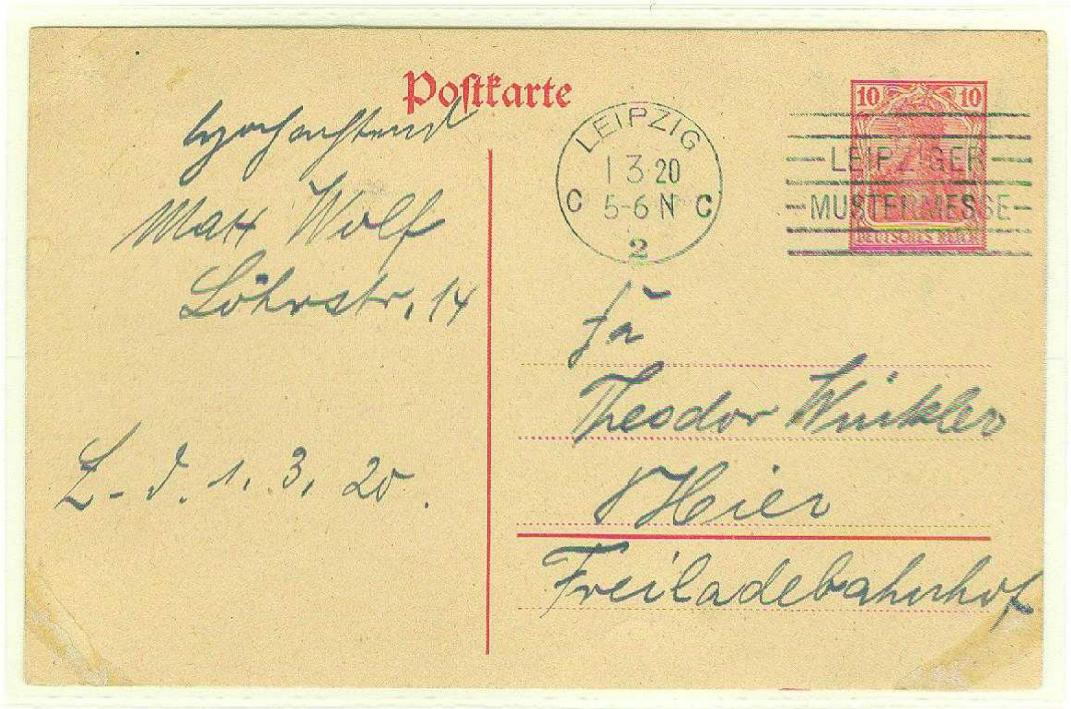 Postkarte
hochachtend
Max Wolf
Löhrstr. 14
L- d. 1. 3. 20.
LEIPZIG
1 3 20
C 5-6 N C
2
10 10
LEIPZIGER
MUSTERMESSE
DEUTSCHES REICH
Fa
Theodor Winkler
Hier
Freiladebahnhof